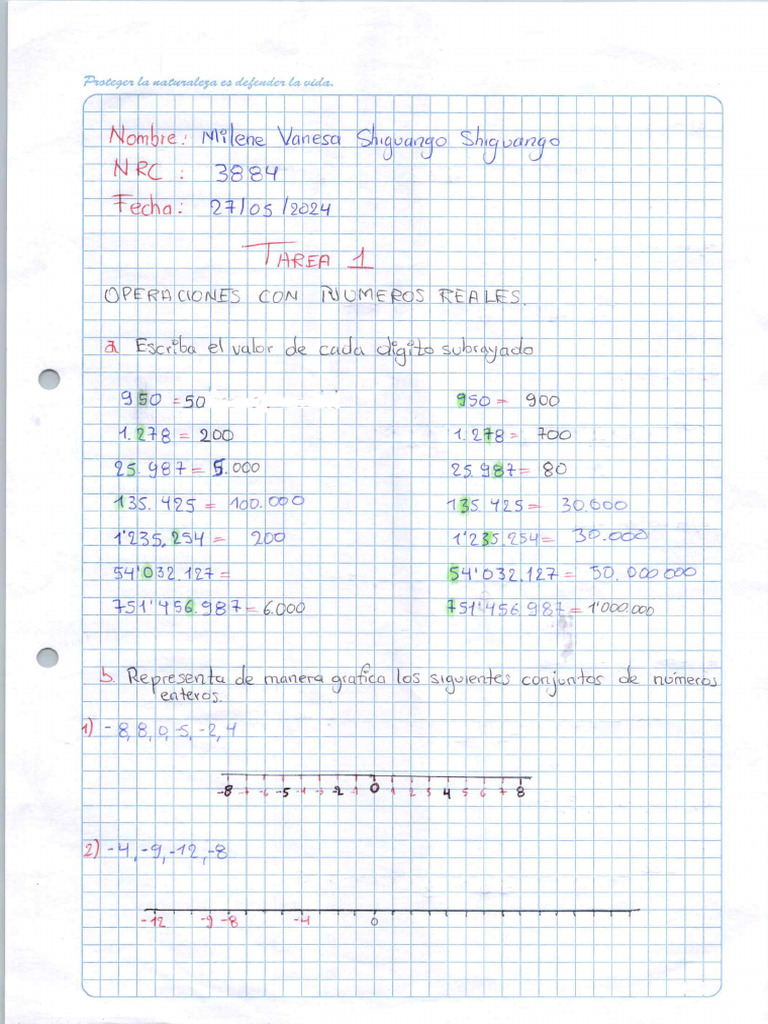 Proteger la naturaleza es defender la vida.
Nombre: Milene Vanesa Shiguango Shiguango
NRC : 3884
Fecha: 27/05/2024
TAREA 1
OPERACIONES CON NUMEROS REALES.
a. Escriba el valor de cada digito subrayado
950 = 50 950 = 900
1.278 = 200 1.278 = 700
25.987 = 5.000 25.987 = 80
135.425 = 100.000 135.425 = 30.000
1'235.254 = 200 1'235.254 = 30.000
54'032.127 = 54'032.127 = 50.000 000
751'456.987 = 6.000 751'456.987 = 1'000.000
b. Representa de manera grafica los siguientes conjuntos de números
enteros.
1) -8, 8, 0, -5, -2, 4
-8 -7 -6 -5 -4 -3 -2 -1 0 1 2 3 4 5 6 7 8
2) -4, -9, -12, -8
-12 -9 -8 -4 0